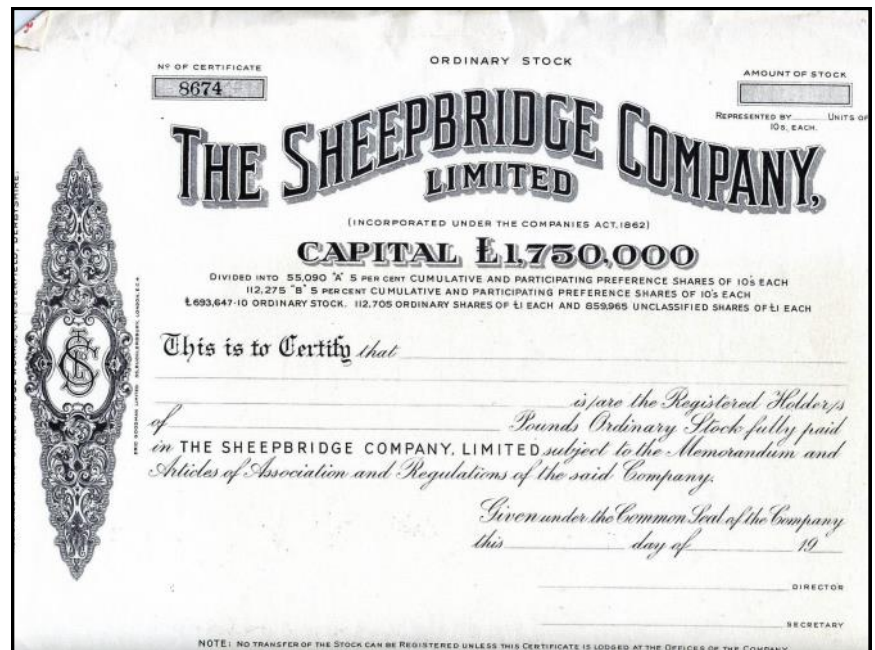 ORDINARY STOCK
Nº OF CERTIFICATE
8674
AMOUNT OF STOCK
REPRESENTED BY UNITS OF
10s. EACH.
THE SHEEPBRIDGE COMPANY,
LIMITED
(INCORPORATED UNDER THE COMPANIES ACT, 1862)
CAPITAL £1,750,000
DIVIDED INTO 55,090 "A" 5 PER CENT CUMULATIVE AND PARTICIPATING PREFERENCE SHARES OF 10s EACH
112,275 "B" 5 PER CENT CUMULATIVE AND PARTICIPATING PREFERENCE SHARES OF 10s EACH
£693,647-10 ORDINARY STOCK. 112,705 ORDINARY SHARES OF £1 EACH AND 859,965 UNCLASSIFIED SHARES OF £1 EACH
This is to Certify that
is/are the Registered Holder/s
of Pounds Ordinary Stock fully paid
in THE SHEEPBRIDGE COMPANY, LIMITED subject to the Memorandum and
Articles of Association and Regulations of the said Company.
Given under the Common Seal of the Company
this day of 19
DIRECTOR
SECRETARY
NOTE: NO TRANSFER OF THE STOCK CAN BE REGISTERED UNLESS THIS CERTIFICATE IS LODGED AT THE OFFICES OF THE COMPANY
CHESTERFIELD, DERBYSHIRE.